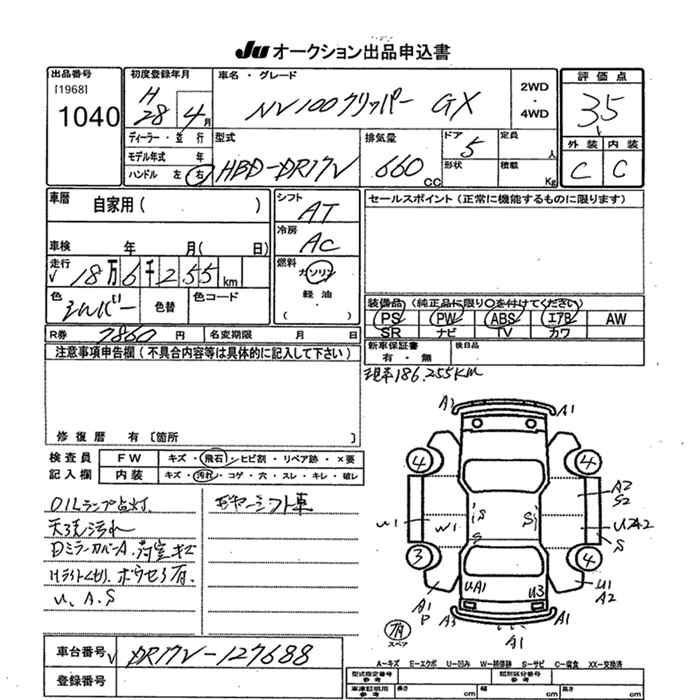 JU オークション出品申込書
出品番号 初度登録年月 車名・グレード 2WD・4WD 評価点
[1968] 1040 H28年4月 NV100クリッパー GX 3.5
外装 内装
C C
ディーラー・並行 型式 排気量 ドア 定員
モデル年式 年 HBD-DR17V 660cc 5 人
ハンドル 左 右 形状 積載 Kg
車歴 自家用( ) シフト AT セールスポイント(正常に機能するものに限ります)
車検 年 月( 日) 冷房 AC
走行 18万6千255km 燃料 ガソリン 軽油 ( )
色 シルバー 色替 色コード 装備品(純正品に限り○を付けてください)
PS PW ABS エアB AW
SR ナビ TV カワ
R券 7860円 名変期限 月 日 新車保証書 有・無 後日品
注意事項申告欄(不具合内容等は具体的に記入して下さい)
現車186,255KM
修復歴 有〔箇所 〕
検査員 FW キズ・飛石・ヒビ割・リペア跡・×要
記入欄 内装 キズ・汚れ・コゲ・穴・スレ・キレ・破レ
OILランプ点灯.
天張汚れ
Dミラーカバー A. 荷室キズ
U、A、S
A1 A1
4 4
A2
S2
U1 W1 S S S
3 4
UA1 U3 U1
A2
A1
P
A3 A1 A1
有
スペア
車台番号 DR17V-127688
登録番号
A-キズ E-エクボ U-凹み W-補修跡 S-サビ C-腐食 XX-交換済
型式指定番号 参考 類別区分番号 参考
車庫証明用 参考 長さ cm 幅 cm 高さ cm